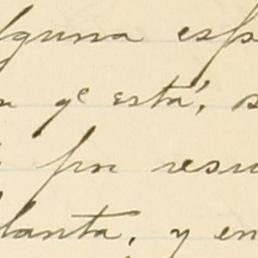 alguna esp
n qe está, s
por resu
lanta, y en